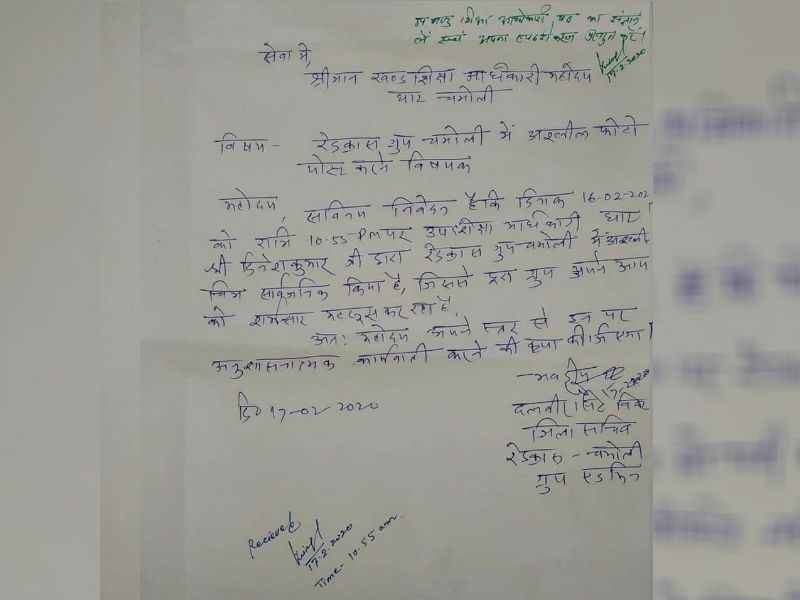 उप खण्ड शिक्षा अधिकारी पत्र का संज्ञान
लें स्वयं अपना स्पष्टीकरण प्रस्तुत करें।
17.2.2020
सेवा में,
श्रीमान खण्ड शिक्षा अधिकारी महोदय
घाट चमोली
विषय- रेडक्रास ग्रुप चमोली में अश्लील फोटो
पोस्ट करने विषयक
महोदय, सविनय निवेदन है कि दिनांक 16-02-202
को रात्रि 10.55 PM पर उपशिक्षा अधिकारी घाट
श्री दिनेश कुमार जी द्वारा रेडक्रास ग्रुप चमोली में अश्लील
चित्र सार्वजनिक किया है, जिससे पूरा ग्रुप अपने आप
को शर्मसार महसूस कर रहा है,
अतः महोदय अपने स्तर से इन पर
अनुशासनात्मक कार्यवाही करने की कृपा कीजिएगा।
दि० 17-02-2020
-भवदीय
17-2-2020
दलवीर सिंह बिष्ट
जिला सचिव
रेडक्रास - चमोली
ग्रुप एडमिन
Recieved
17.2.2020
Time- 10.55 am.